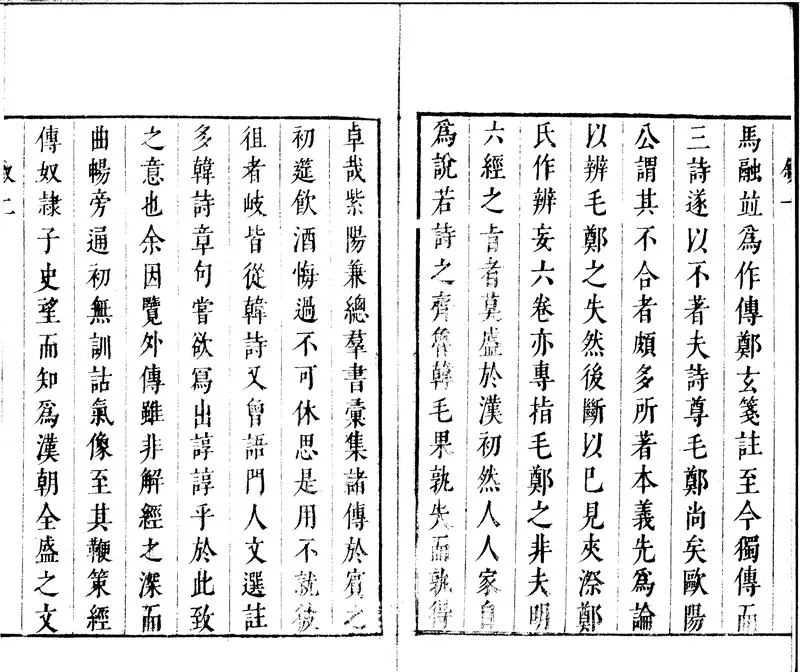 敘一
馬融並爲作傳鄭玄箋註至今獨傳而
三詩遂以不著夫詩尊毛鄭尚矣歐陽
公謂其不合者頗多所著本義先爲論
以辨毛鄭之失然後斷以己見夾漈鄭
氏作辨妄六卷亦專指毛鄭之非夫明
六經之旨者莫盛於漢初然人人家自
爲說若詩之齊魯韓毛果孰失而孰得
卓哉紫陽兼總羣書彙集諸傳於賓之
初筵飲酒悔過不可休思是用不就彼
徂者岐皆從韓詩又曾語門人文選註
多韓詩章句嘗欲寫出諄諄乎於此致
之意也余因覽外傳雖非解經之深而
曲暢旁通初無訓詁氣像至其鞭策經
傳奴隷子史望而知爲漢朝全盛之文
敘二